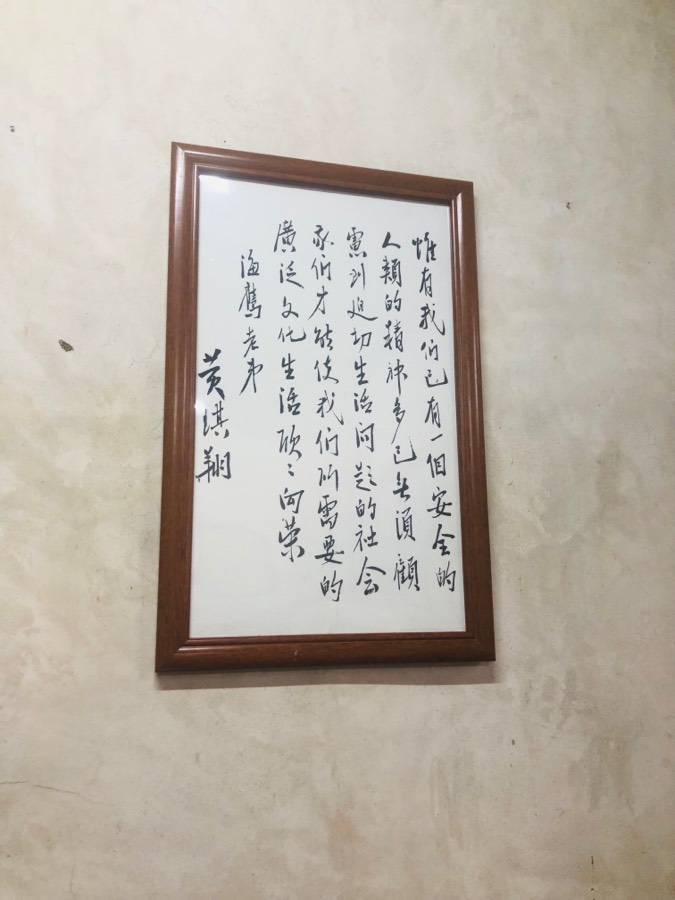 惟有我们已有一個安全的
人類的精神多已無須顧
慮到迫切生活问題的社会
我们才能使我们所需要的
廣泛文化生活欣〻向荣
海鹰老弟
黄琪翔